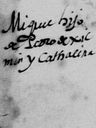 Miguel hijo
de Pedro de Xal
min y Cathalina